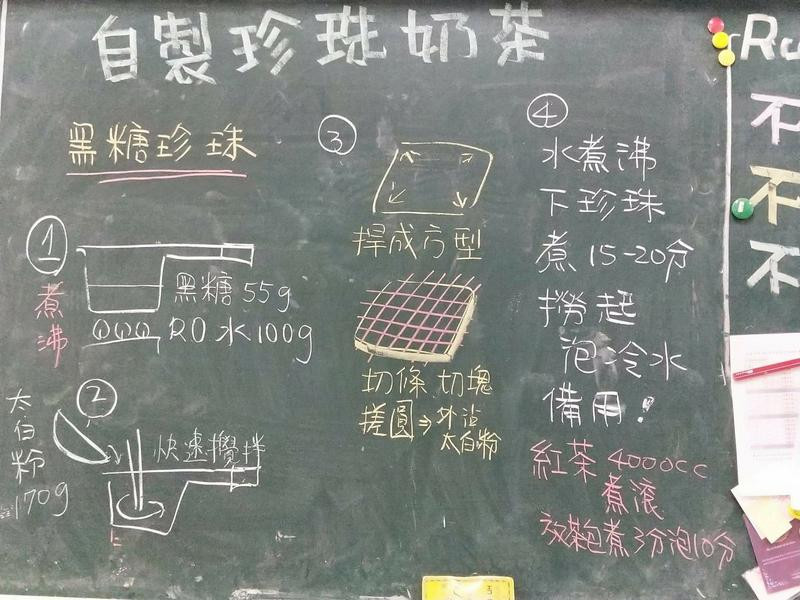 自製珍珠奶茶
黑糖珍珠
①
煮沸
黑糖 55g
RO水100g
②
太白粉
170g
快速攪拌
③
捍成方型
切條 切塊
搓圓⇒外沾
太白粉
④
水煮沸
下珍珠
煮15-20分
撈起
泡冷水
備用!
紅茶4000cc
煮滾
放茶包煮3分泡10分
Ru
不
不
不